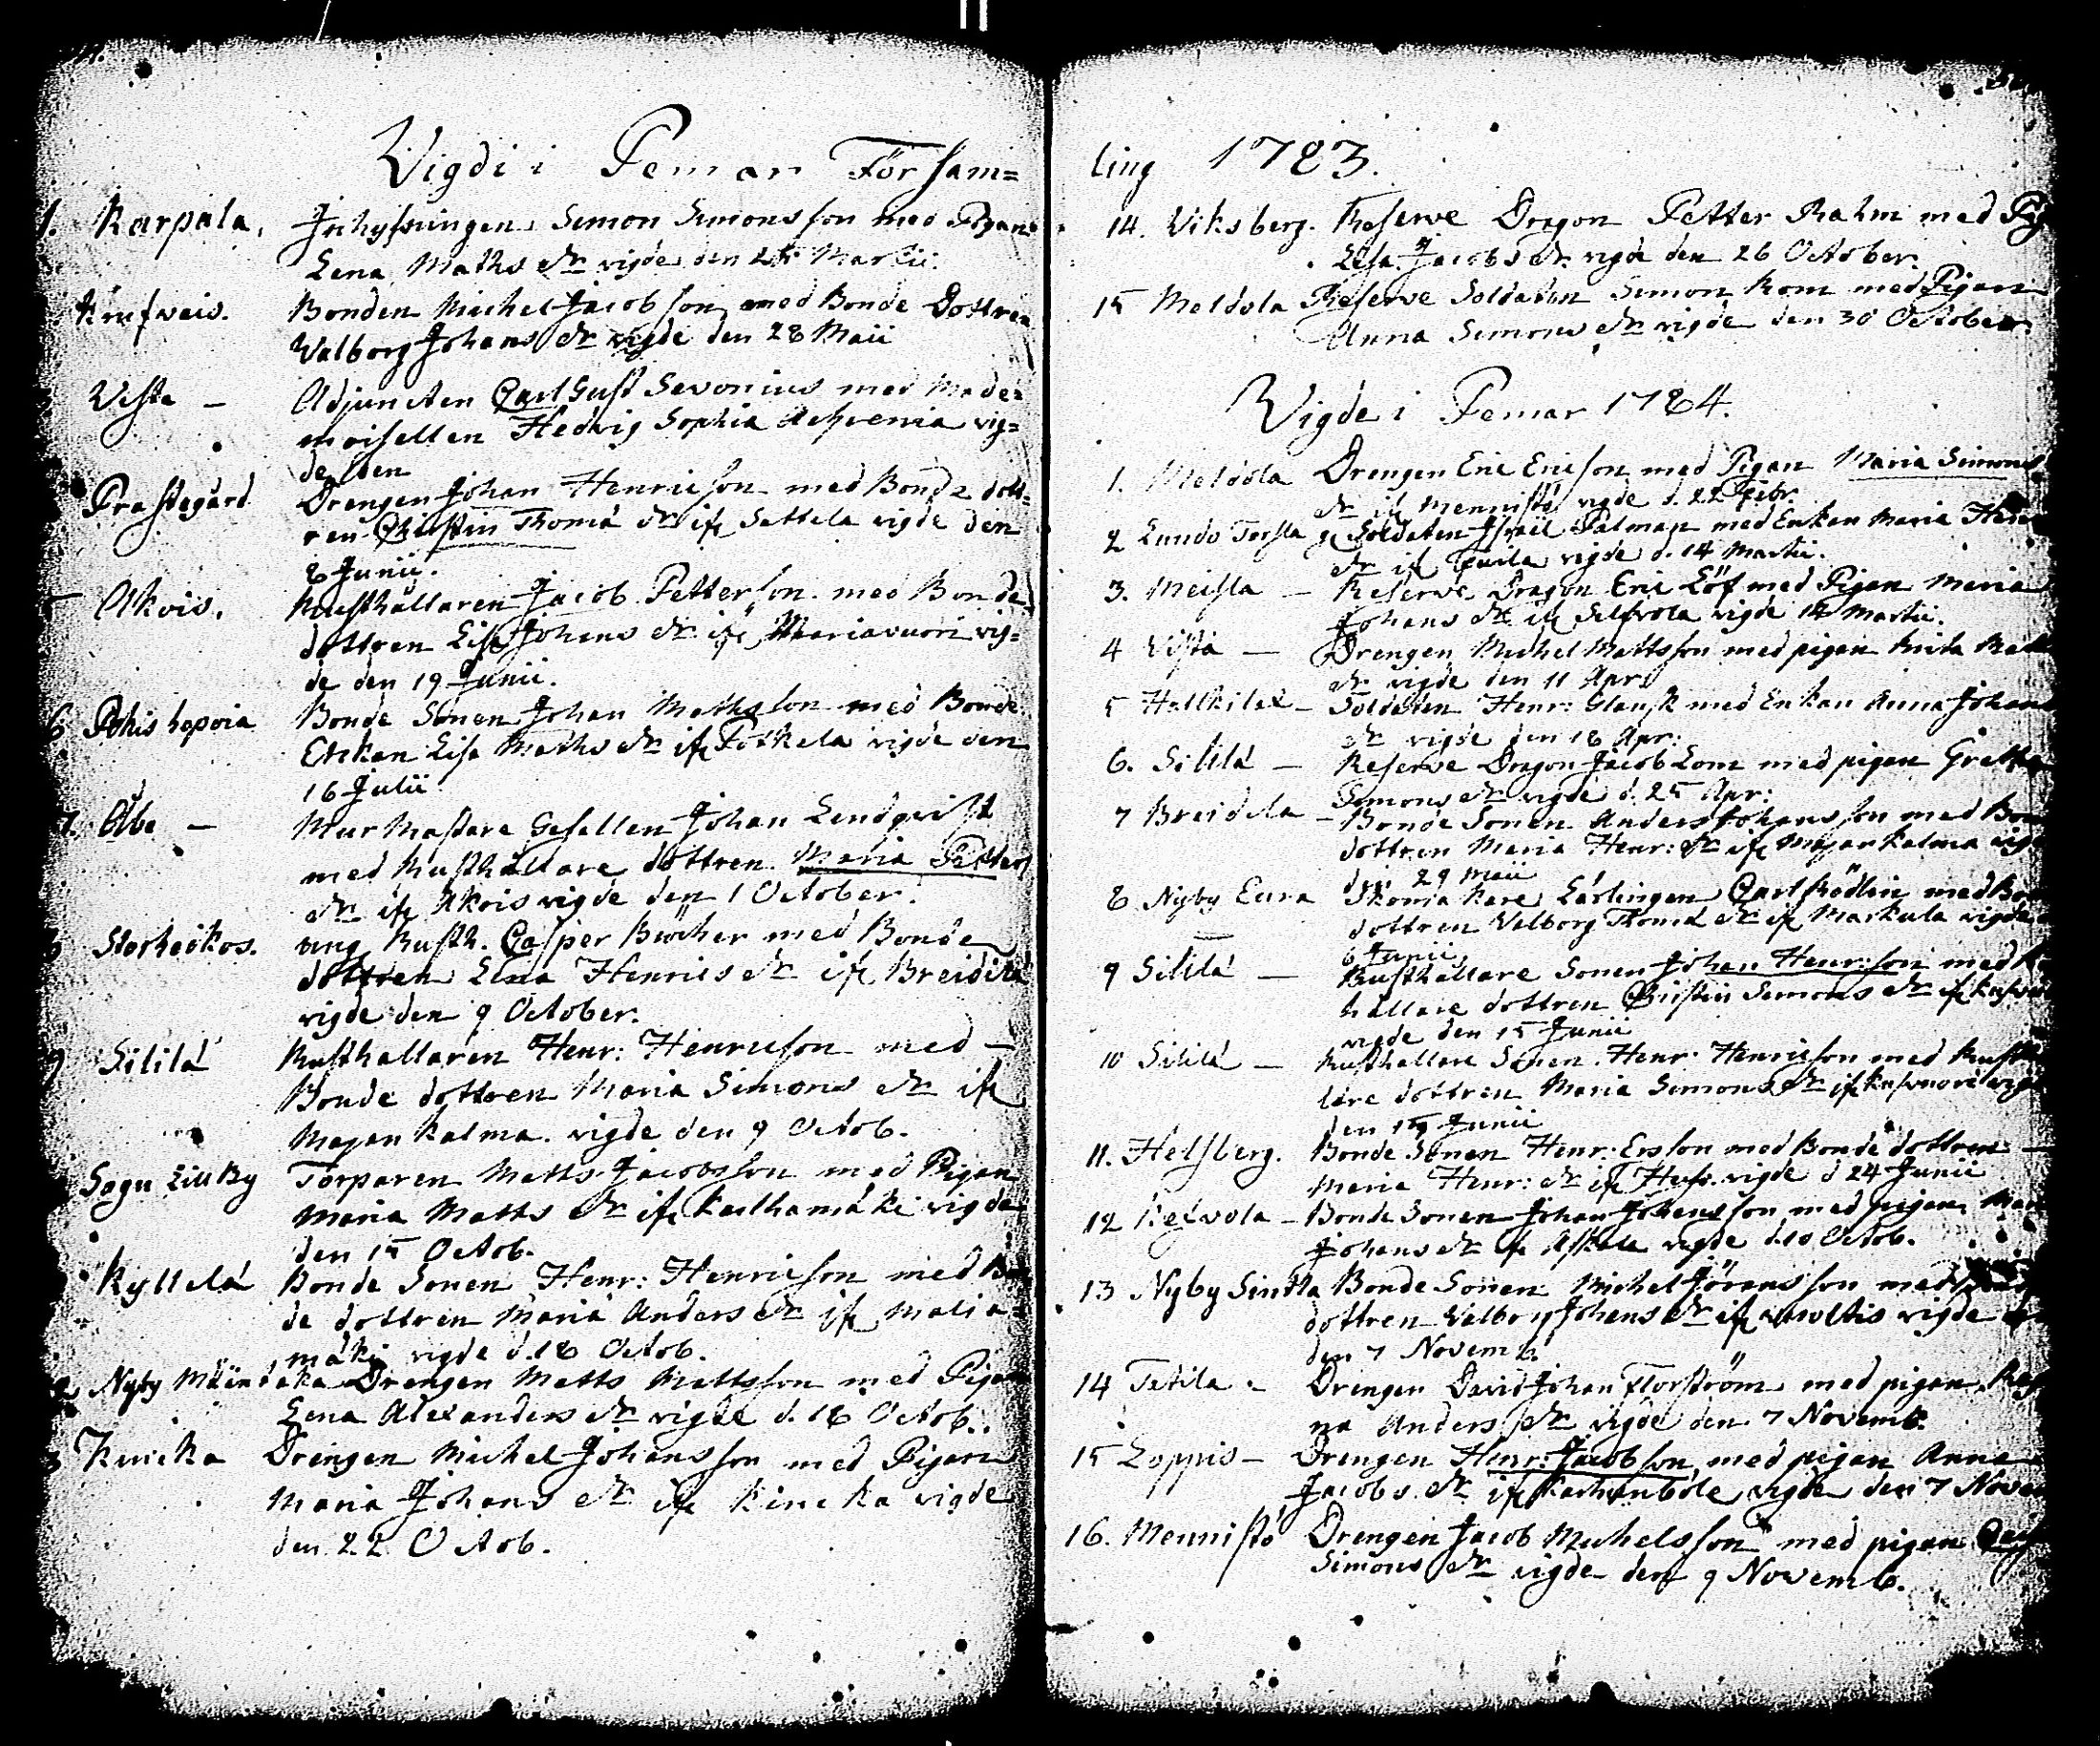 Vigdi i Pemar Försams=
1. Karpala. Inhysningen Simon Simonsson med Pigan
Lena Maths dr vigde den 25 Martii.
Krufvais. Bonden Michel Jacobsson med Bonde Dottren
Valborg Johans dr vigde den 28 Maii
Vista — Adjuncten Carl Gust Savonius med Made=
moisellen Hedvig Sophia vig=
de den
Prästegård Drengen Johan Henricsson med Bonde dott=
ren Christin Thomä dr ifr Sattela vigde den
8 Junii.
5 Akois. Rusthållaren Jacob Pettersson med Bonde
dottren Lisa Johans dr ifr Maariavuori vig=
de den 19 Junii.
6 Pohis lepoia Bonde Sonen Johan Mathsson med Bonde
Enkan Lisa Maths dr ifr Potkela vigde den
16 Julii
7. Åbo — Mur Mästare Gesellen Johan Lendqvist
med Rusthållare dottren Maria Petters
dr ifr Akois vigde den 1 October.
Storheikos. ung Rusth. Casper Büchер med Bonde
dottren Lena Henrics dr ifr Breidilä
vigde den 9 October.
9 Sililä Rusthållaren Henr: Henricson med —
Bonde dottren Maria Simons dr ifr
Majankalma. vigde den 9 Octob.
Sagu Lillby Torparen Matts Jacobsson med Pigan
Maria Matts dr ifr Karlhamäki vigde
den 15 Octob.
Kyllelä Bonde Sonen Henr: Henricson med Bon
de dottren Maria Anders dr ifr Matia=
mäki vigde d. 18 Octob.
Nyby Drengen Matts Mattsson med Pigan
Lena Alexanders dr vigde d. 18 Octob.
3 Kuicka Drengen Michel Johansson med Pigan
Maria Johans dr ifr vigde
den 22 Octob.
ling 1783.
14. Viksberg. Reserve Dragon Petter Rahm med Pig
Lisa Jacobs dr. vigde den 26 October.
15 Meldola Reserve Soldaten Simon Rom med Pigan
Anna Simons dr vigde den 30 October.
Vigde i Pemar 1784.
1. Meldola Drengen Eric Ericson med Pigan Maria Simons
dr ifr Mennistö vigde d. 22 Febr.
2 Lundo Torsla Soldaten Israel Palman med Enkan Maria Hen
dr ifr vigde d. 14 Martii.
3. Meisla — Reserve Dragon Eric Löf med Pigan Maria
Johans dr ifr vigde 14 Martii.
4 Vista — Drengen Michel Mattsson med pigan Brita Matts
dr vigde den 11 Apr.
5 Hallkilax — Soldaten Henr: Glansk med Enkan Anna Johans
dr vigde den 18 Apr:
6. Sililä — Reserve Dragon Jacob Lom med pigan Gretha
Simons dr vigde d. 25 Apr:
7 Breidila — Bonde Sonen Anders Johansson med Bon
dottren Maria Henr: dr ifr Majankalma vigd
den 29 Maii
8 Nyby Eura Skomakare Lärlingen Carl Bödlin med Bon
dottren Valborg Thomä dr ifr Markula vigde
6 Junii
9 Sililä — Rusthållare Sonen Johan Henr:son med R
hållare dottren Christin Simons dr ifr
vigde den 15 Junii
10 Sililä — Rusthållare Sonen Henr: Henricson med Rusth
lare dottren Maria Simons dr ifr vigd
den 15 Junii
11. Helsberg. Bonde Sonen Henr: Ersson med Bonde dottren —
Maria Henr: dr ifr vigde d 24 Junii
12 Kexvola — Bonde Sonen Johan Johansson med pigan Mar
Johans dr ifr Askala vigde d. 10 Octob.
13 Nyby Bonde Sonen Michel Jöransson med
dottren Valborg Johans dr ifr vigde
den 7 Novemb.
14 Tatila. — Drengen David Johan Florström med pigan Reg
na Anders dr vigde den 7 Novemb.
15 Loppis — Drengen Henr: Jacobson med pigan Anna
Jacobs dr ifr vigde den 7 Novem
16. Mennistö Drengen Jacob Michelsson med pigan
Simons dr vigde den 9 Novemb.